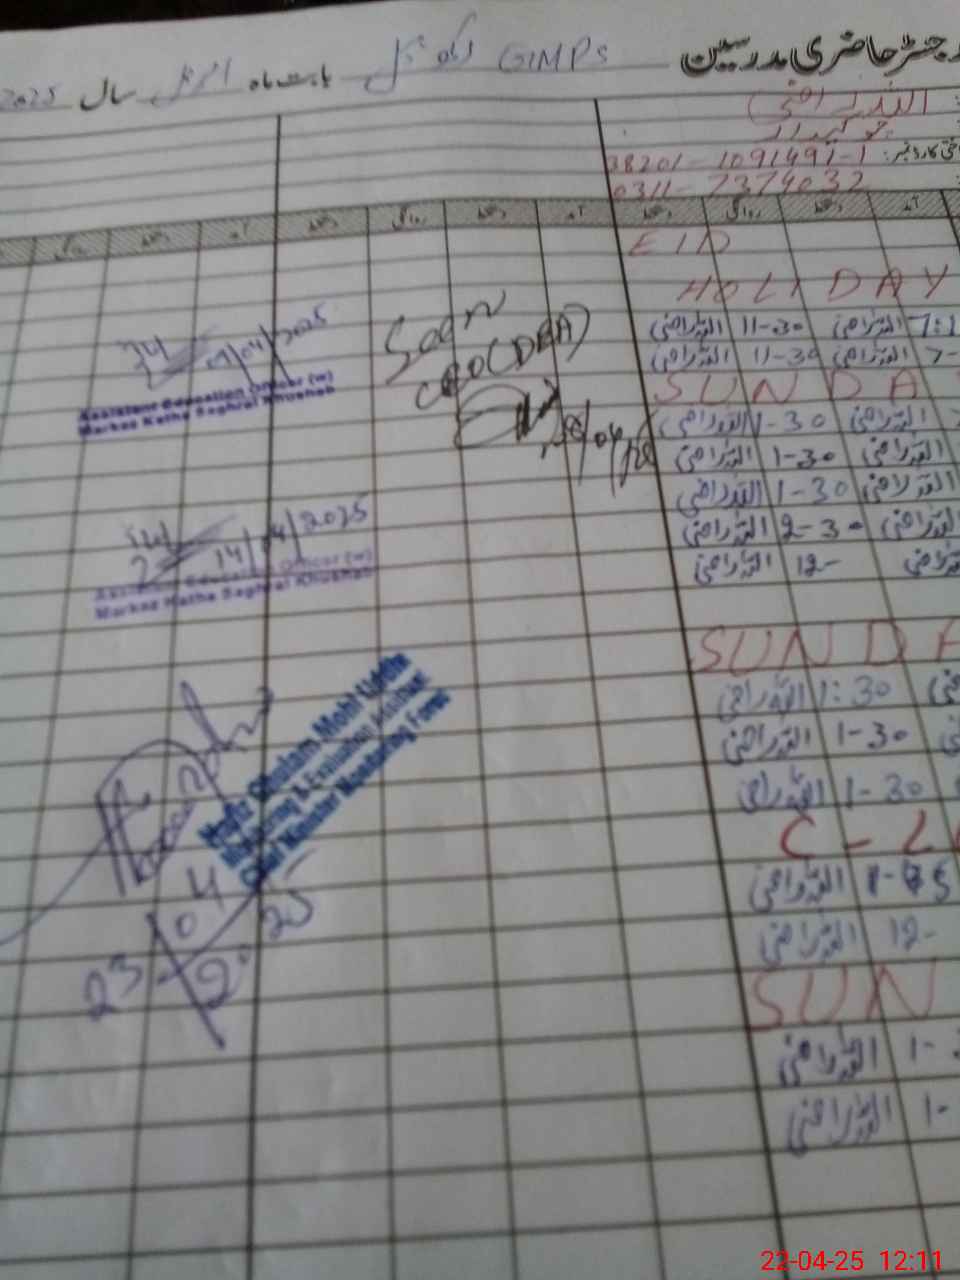 رجسٹر حاضری مدرسین GMPS بابت ماہ اپریل سال 2025
اللہ راضی
چوکیدار
38201-1091491-1
0311-7374032
آمد دستخط روانگی دستخط آمد دستخط روانگی دستخط آمد دستخط روانگی
EID
HOLIDAY
اللہ راضی 11-30 اللہ راضی
اللہ راضی 11-30 اللہ راضی 7-
SUNDA
اللہ راضی 1-30 اللہ راضی
اللہ راضی 1-30 اللہ راضی
اللہ راضی 1-30 اللہ راضی
اللہ راضی 2-30 اللہ راضی
اللہ راضی 12-
SUNDA
اللہ راضی 1:30
اللہ راضی 1-30
اللہ راضی 1-30
C-L
اللہ راضی
اللہ راضی 12-
SUN
اللہ راضی 1-
اللہ راضی 1-
Seen
CEO(DEA)
/04/2025
Assistant Education Officer (w)
Markaz Katha Saghral Khushab
14/04/2025
Assistant Education Officer (w)
Markaz Katha Saghral Khushab
Hafiz Ghulam Mohi Uddin
Monitoring & Evaluation Assistant
Chief Minister Monitoring Force
23 04 2025
22-04-25 12:11